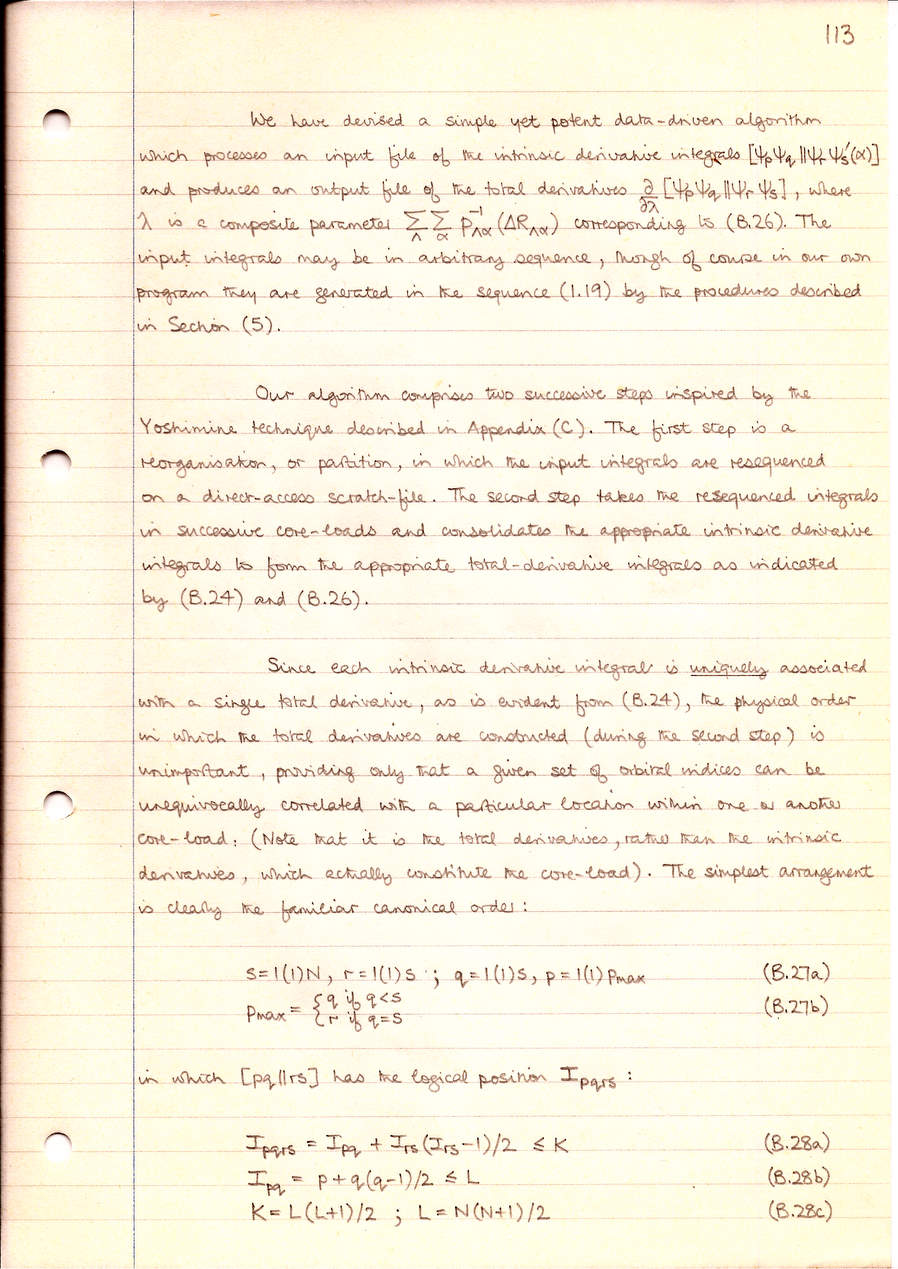 113
We have devised a simple yet potent data-driven algorithm
which processes an input file of the intrinsic derivative integrals [ΨpΨq‖Ψr Ψs′(α)]
and produces an output file of the total derivatives ∂/∂λ [ΨpΨq‖Ψr Ψs], where
λ is a composite parameter ∑_Λ ∑_α p⁻¹_Λα (ΔR_Λα) corresponding to (B.26). The
input integrals may be in arbitrary sequence, though of course in our own
program they are generated in the sequence (1.19) by the procedures described
in Section (5).
Our algorithm comprises two successive steps inspired by the
Yoshimine technique described in Appendix (C). The first step is a
reorganisation, or partition, in which the input integrals are resequenced
on a direct-access scratch-file. The second step takes the resequenced integrals
in successive core-loads and consolidates the appropriate intrinsic derivative
integrals to form the appropriate total-derivative integrals as indicated
by (B.24) and (B.26).
Since each intrinsic derivative integral is uniquely associated
with a single total derivative, as is evident from (B.24), the physical order
in which the total derivatives are constructed (during the second step) is
unimportant, providing only that a given set of orbital indices can be
unequivocally correlated with a particular location within one or another
core-load. (Note that it is the total derivatives, rather than the intrinsic
derivatives, which actually constitute the core-load). The simplest arrangement
is clearly the familiar canonical order:
s=1(1)N, r=1(1)s ; q=1(1)s, p=1(1)pmax (B.27a)
pmax = { q if q<s { r if q=s (B.27b)
in which [pq‖rs] has the logical position Ipqrs :
Ipqrs = Ipq + Irs(Irs−1)/2 ≤ K (B.28a)
Ipq = p+q(q-1)/2 ≤ L (B.28b)
K=L(L+1)/2 ; L=N(N+1)/2 (B.28c)